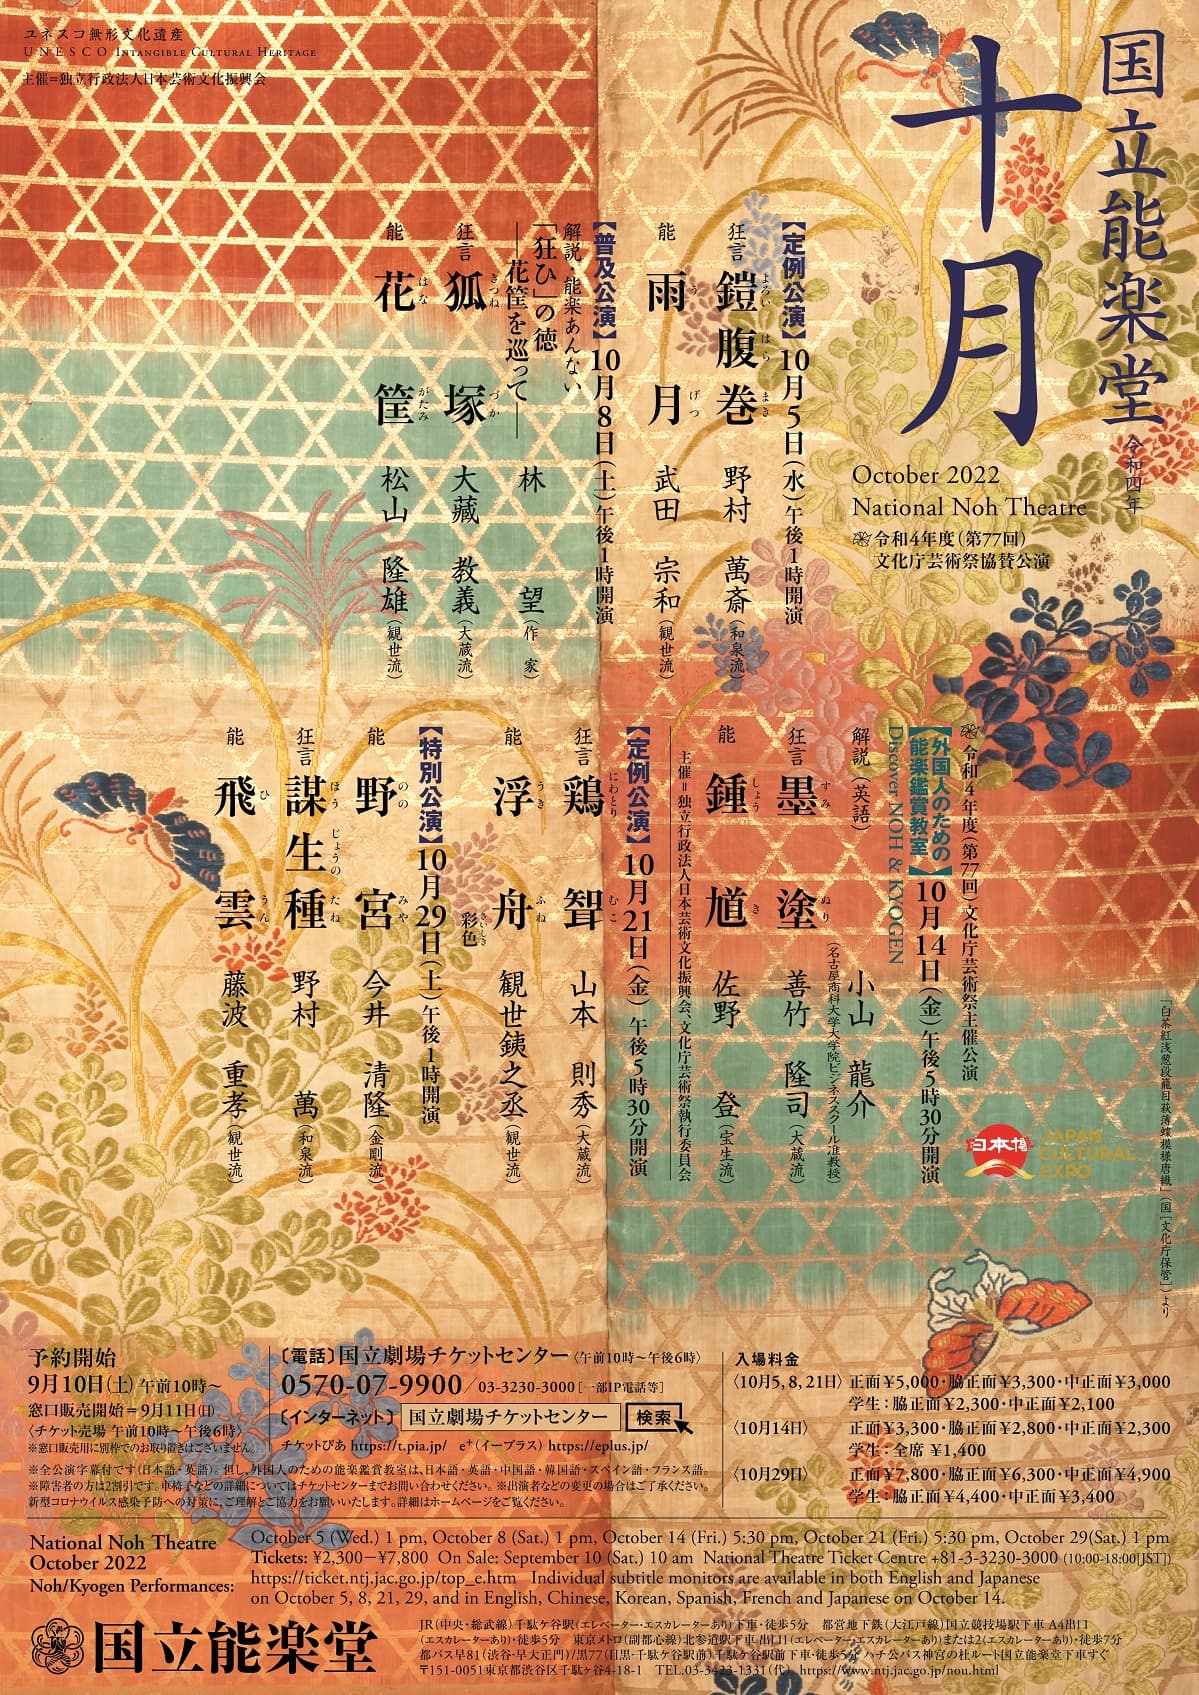 ユネスコ無形文化遺産
UNESCO INTANGIBLE CULTURAL HERITAGE
主催=独立行政法人日本芸術文化振興会
国立能楽堂
令和四年
十月
October 2022
National Noh Theatre
令和4年度(第77回)
文化庁芸術祭協賛公演
【定例公演】10月5日(水)午後1時開演
狂言 鎧腹巻 よろい はら まき 野村 萬斎(和泉流)
能 雨月 う げつ 武田 宗和(観世流)
【普及公演】10月8日(土)午後1時開演
解説・能楽あんない
「狂ひ」の徳
―花筐を巡って― 林 望(作家)
狂言 狐塚 きつね づか 大藏 教義(大蔵流)
能 花筐 はな がたみ 松山 隆雄(観世流)
令和4年度(第77回)文化庁芸術祭主催公演
【外国人のための
能楽鑑賞教室】10月14日(金)午後5時30分開演
Discover NOH & KYOGEN
解説(英語) 小山 龍介
(名古屋商科大学大学院ビジネススクール准教授)
狂言 墨塗 すみ ぬり 善竹 隆司(大蔵流)
能 鍾馗 しょう き 佐野 登(宝生流)
主催=独立行政法人日本芸術文化振興会、文化庁芸術祭執行委員会
日本博
JAPAN
CULTURAL
EXPO
【定例公演】10月21日(金)午後5時30分開演
狂言 鶏聟 にわとり むこ 山本 則秀(大蔵流)
能 浮舟 うき ふね 観世銕之丞(観世流)
彩色 さいしき
【特別公演】10月29日(土)午後1時開演
能 野宮 のの みや 今井 清隆(金剛流)
狂言 謀生種 ほう じょうの たね 野村 萬(和泉流)
能 飛雲 ひ うん 藤波 重孝(観世流)
「白茶紅浅葱段籠目萩薄蝶模様唐織」(国[文化庁保管])より
予約開始
9月10日(土)午前10時~
窓口販売開始=9月11日(日)
〈チケット売場 午前10時~午後6時〉
※窓口販売用に別枠でのお取り置きはございません。
〔電話〕国立劇場チケットセンター〈午前10時~午後6時〉
0570-07-9900/03-3230-3000[一部IP電話等]
〔インターネット〕国立劇場チケットセンター 検索
チケットぴあ https://t.pia.jp/ e+(イープラス) https://eplus.jp/
※全公演字幕付です(日本語・英語)。但し、外国人のための能楽鑑賞教室は、日本語・英語・中国語・韓国語・スペイン語・フランス語。
※障害者の方は2割引です。車椅子などの詳細についてはチケットセンターまでお問い合わせください。※出演者などの変更の場合はご了承ください。
新型コロナウイルス感染予防への対策に、ご理解とご協力をお願いいたします。詳細はホームページをご覧ください。
入場料金
〈10月5,8,21日〉正面¥5,000・脇正面¥3,300・中正面¥3,000
学生:脇正面¥2,300・中正面¥2,100
〈10月14日〉正面¥3,300・脇正面¥2,800・中正面¥2,300
学生:全席 ¥1,400
〈10月29日〉正面¥7,800・脇正面¥6,300・中正面¥4,900
学生:脇正面¥4,400・中正面¥3,400
National Noh Theatre
October 2022
Noh/Kyogen Performances:
October 5 (Wed.) 1 pm, October 8 (Sat.) 1 pm, October 14 (Fri.) 5:30 pm, October 21 (Fri.) 5:30 pm, October 29(Sat.) 1 pm
Tickets: ¥2,300―¥7,800 On Sale: September 10 (Sat.) 10 am National Theatre Ticket Centre +81-3-3230-3000 (10:00-18:00[JST])
https://ticket.ntj.jac.go.jp/top_e.htm Individual subtitle monitors are available in both English and Japanese
on October 5, 8, 21, 29, and in English, Chinese, Korean, Spanish, French and Japanese on October 14.
国立能楽堂
JR(中央・総武線)千駄ケ谷駅(エレベーター・エスカレーターあり)下車・徒歩5分 都営地下鉄(大江戸線)国立競技場駅下車 A4出口
(エスカレーターあり)・徒歩5分 東京メトロ(副都心線)北参道駅下車 出口1(エレベーター・エスカレーターあり)または2(エスカレーターあり)・徒歩7分
都バス早81(渋谷-早大正門)/黒77(目黒-千駄ケ谷駅前)千駄ケ谷駅前下車・徒歩5分 ハチ公バス神宮の杜ルート国立能楽堂下車すぐ
〒151-0051東京都渋谷区千駄ケ谷4-18-1 TEL.03-3423-1331(代) https://www.ntj.jac.go.jp/nou.html